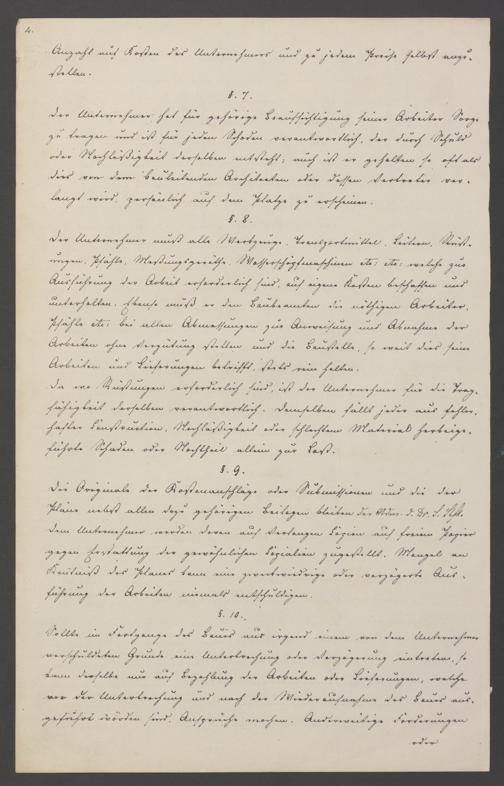 4.
Anzahl auf Kosten des Unternehmers und zu jedem Preise selbst anzu-
stellen.
§. 7.
Der Unternehmer hat für gehörige Beaufsichtigung seiner Arbeiter Sorge
zu tragen und ist für jeden Schaden verantwortlich, der durch Schuld
oder Nachläßigkeit derselben entsteht; auch ist er gehalten so oft als
dies von dem bauleitenden Architecten oder dessen Vertreter ver-
langt wird, persönlich auf dem Platze zu erscheinen.
§. 8.
Der Unternehmer muß alle Werkzeuge, Transportmittel, Leitern, Rüst-
ungen, Pfähle, Meßungsgeräthe, Wasserschöpfmaschinen etc. etc. welche zur
Ausführung der Arbeit erforderlich sind, auf eigene Kosten beschaffen und
unterhalten. Ebenso muß er den Baubeamten die nöthigen Arbeiter,
Pfähle etc. bei allen Abmessungen zur Anweisung und Abnahme der
Arbeiten ohne Vergütung stellen und die Baustelle, so weit dies seine
Arbeiten und Lieferungen betrifft, stets rein halten.
Da wo Rüstungen erforderlich sind, ist der Unternehmer für die Trag-
fähigkeit derselben verantwortlich. Demselben fällt jeder aus fehler-
hafter Construction, Nachläßigkeit oder schlechtem Material herbeige-
führte Schaden oder Nachtheil allein zur Last.
§. 9.
Die Originale der Kostenanschläge oder Submissionen und die der
Pläne nebst allen dazu gehörigen Beilagen bleiben
dem Unternehmer werden deren auf Verlangen Copien auf freiem Papier
gegen Erstattung der gewöhnlichen Copialien zugestellt. Mangel an
Kenntniß des Planes kann eine zweckwidrige oder verzögerte Aus-
führung der Arbeiten niemals entschuldigen.
§. 10.
Sollte im Fortgange des Baues aus irgend einem von dem Unternehmer
verschuldeten Grunde eine Unterbrechung oder Verzögerung eintreten, so
kann derselbe nur auf Bezahlung der Arbeiten oder Lieferungen, welche
vor der Unterbrechung und nach der Wiederaufnahme des Baues aus-
geführt worden sind, Ansprüche machen. Anderweitige Forderungen
oder